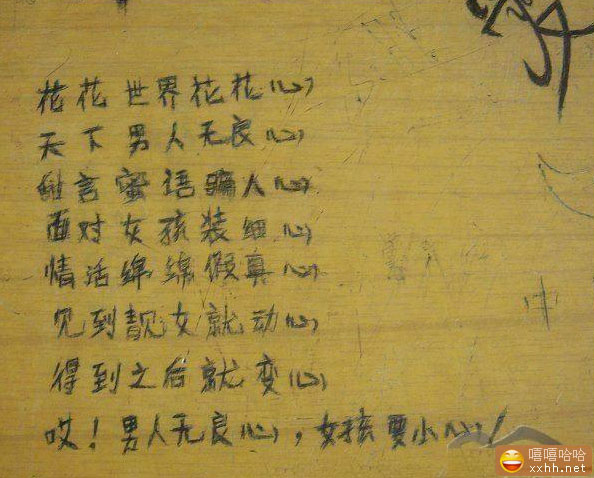 花花世界花花心
天下男人无良心
甜言蜜语骗人心
面对女孩装细心
情话绵绵假真心
见到靓女就动心
得到之后就变心
哎！男人无良心，女孩要小心！
中
嘻嘻哈哈
xxhh.net